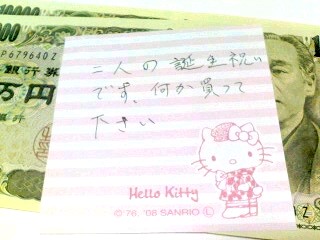 10000
P679640Z
銀行券
万円
二人の誕生祝い
です、何か買って
下さい
Hello Kitty
©'76, '08 SANRIO Ⓛ
Z